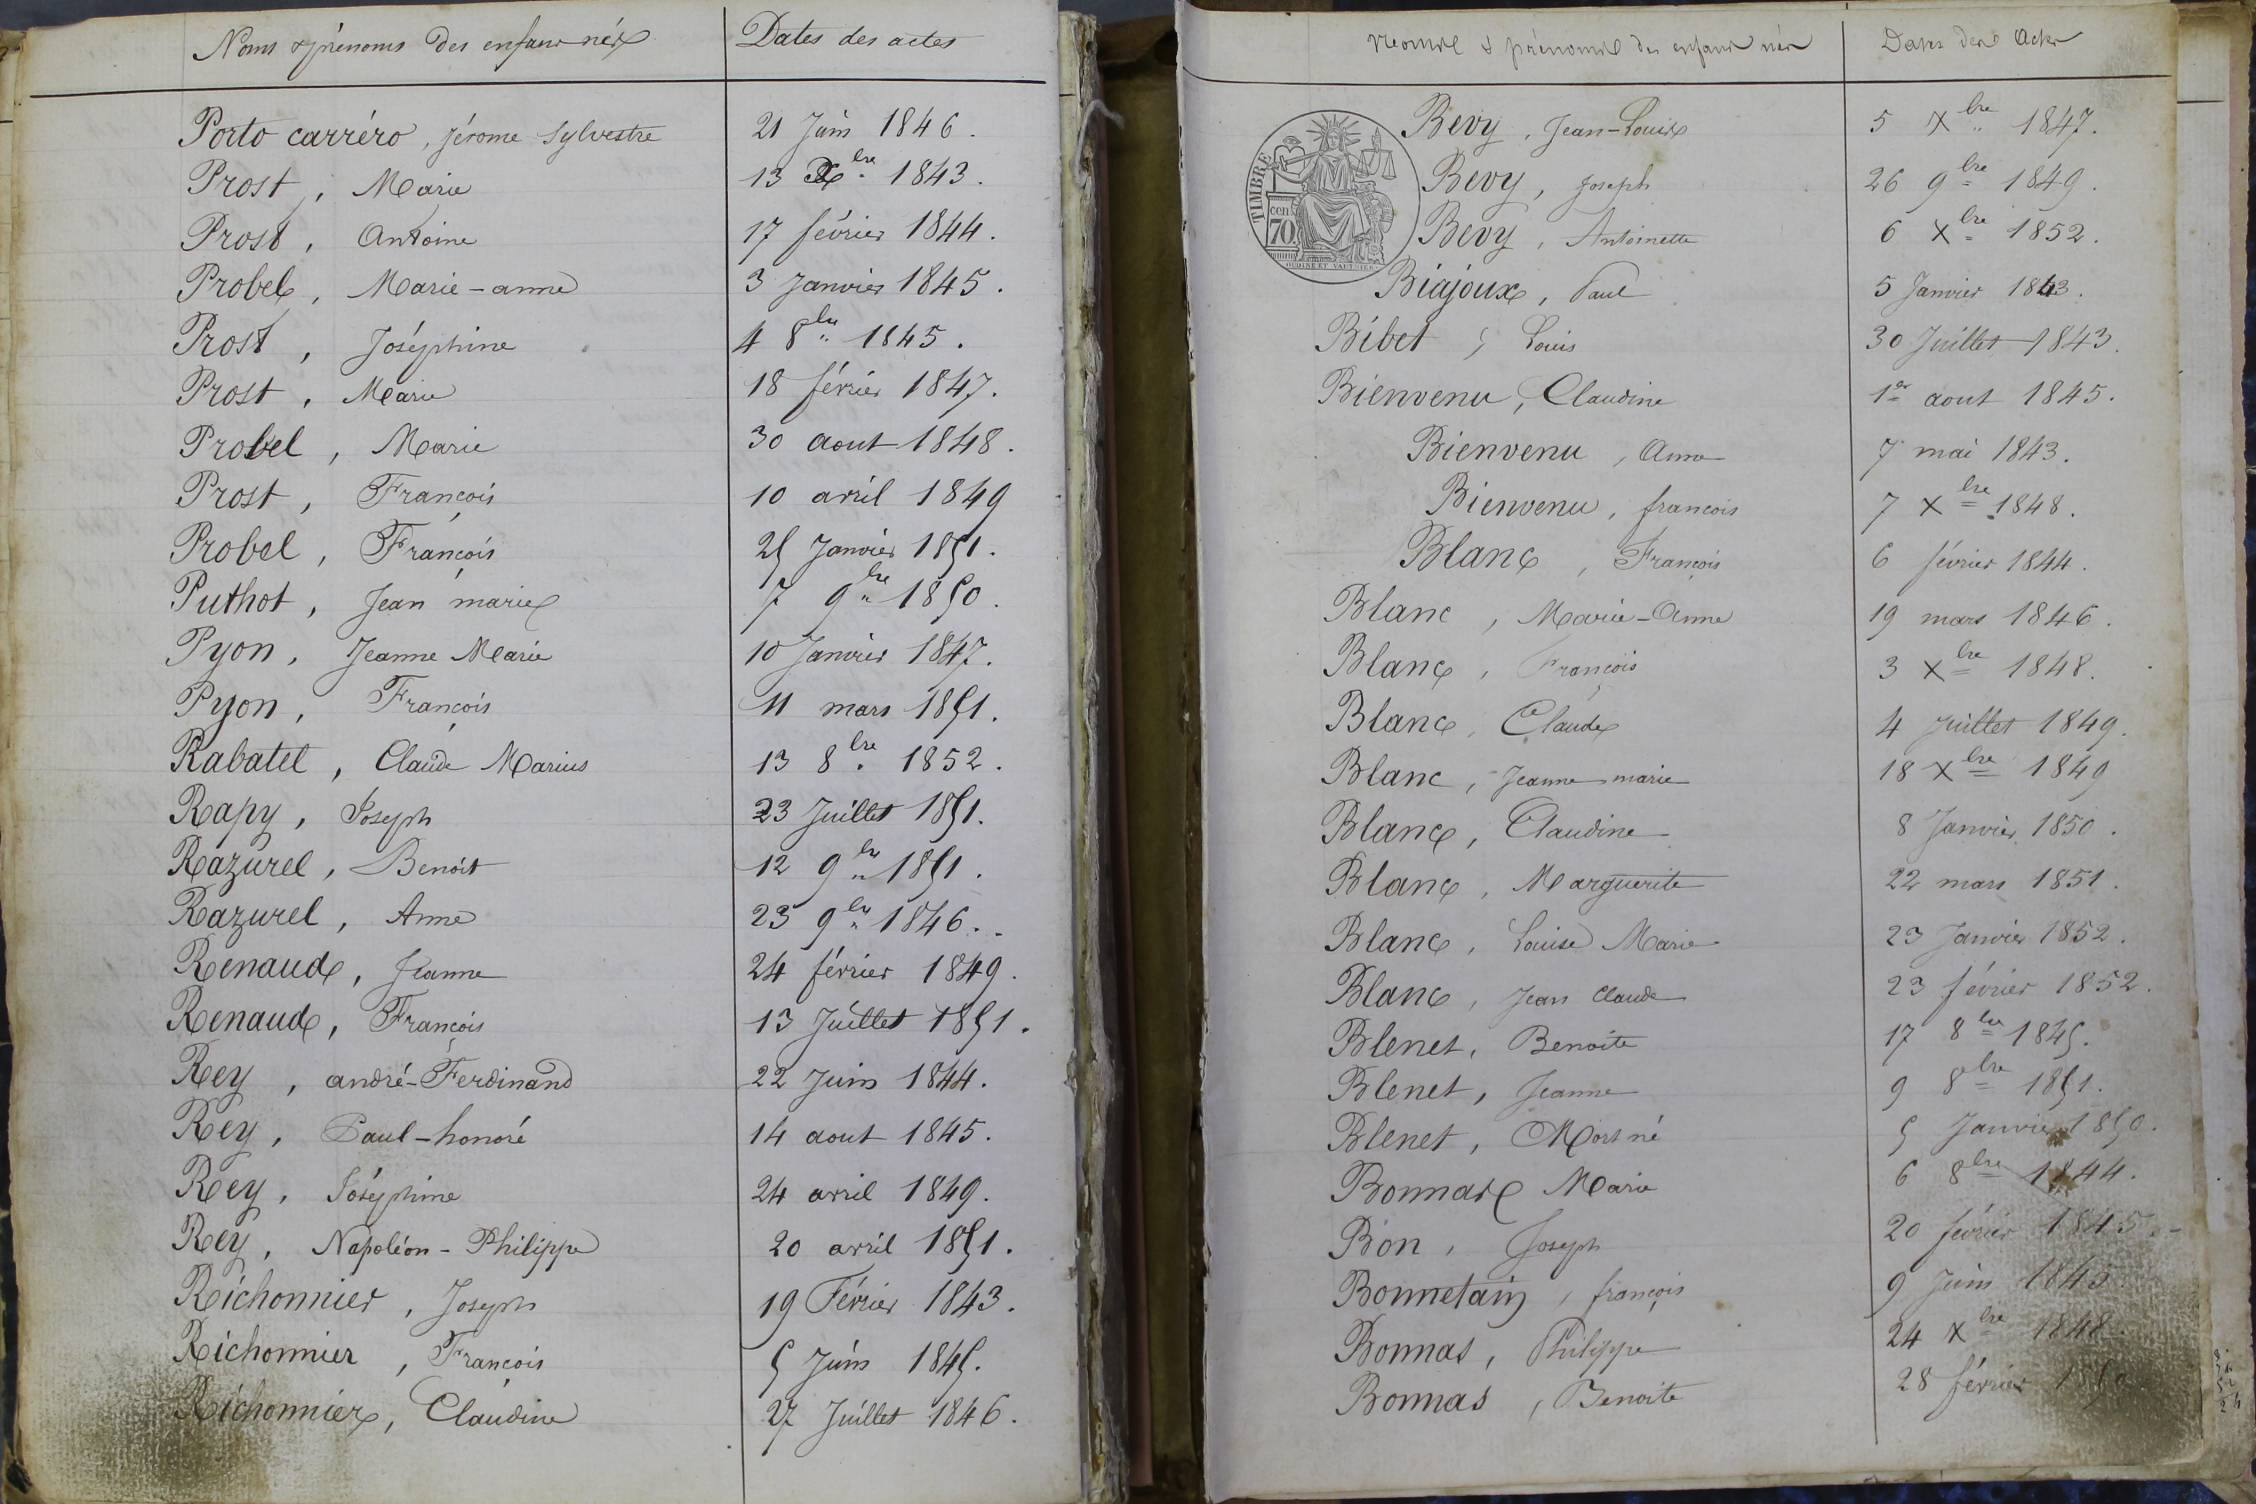 Noms & prénoms des enfans nés Dates des actes
Porto carréro, Jérome Sylvestre 21 Juin 1846.
Prost, Marie 13 Xbre 1843.
Prost, Antoine 17 février 1844.
Probel, Marie-anne 3 Janvier 1845.
Prost, Joséphine 4 8bre 1845.
Prost, Marie 18 février 1847.
Probel, Marie 30 aout 1848.
Prost, François 10 avril 1849
Probel, François 25 Janvier 1851.
Puthot, Jean marie 7 9bre 1850.
Pyon, Jeanne Marie 10 Janvier 1847.
Pyon, François 11 mars 1851.
Rabatel, Claude Marius 13 8bre 1852.
Rapy, Joseph 23 Juillet 1851.
Razurel, Benoit 12 9bre 1851.
Razurel, Anne 23 9bre 1846.
Renaud, Jeanne 24 février 1849.
Renaud, François 13 Juillet 1851.
Rey, andré-Ferdinand 22 Juin 1844.
Rey, Paul-honoré 14 aout 1845.
Rey, Joséphine 24 avril 1849.
Rey, Napoléon-Philippe 20 avril 1851.
Richonnier, Joseph 19 Février 1843.
Richonnier, François 5 Juin 1845.
Richonnier, Claudine 27 Juillet 1846.
Noms & prénoms des enfans nés Dates des Actes
TIMBRE
70 cen
OUDINÉ ET VAUTHIER
Bevy, Jean-Louis 5 Xbre 1847.
Bevy, Joseph 26 9bre 1849.
Bevy, Antoinette 6 Xbre 1852.
Biajoux, Paul 5 Janvier 1843.
Bibet, Louis 30 Juillet 1843.
Bienvenu, Claudine 1er aout 1845.
Bienvenu, Anne 7 mai 1843.
Bienvenu, françois 7 Xbre 1848.
Blanc, François 6 février 1844.
Blanc, Marie-Anne 19 mars 1846.
Blanc, François 3 Xbre 1848.
Blanc, Claude 4 Juillet 1849.
Blanc, Jeanne marie 18 Xbre 1849
Blanc, Claudine 8 Janvier 1850.
Blanc, Marguerite 22 mars 1851.
Blanc, Louise Marie 23 Janvier 1852.
Blanc, Jean Claude 23 février 1852.
Blenet, Benoite 17 8bre 1845.
Blenet, Jeanne 9 8bre 1851.
Blenet, Mort né 5 Janvier 1850.
Bonnas Marie 6 8bre 1844.
Bon, Joseph 20 février 1845.
Bonnetain, françois 9 Juin 1845
Bonnas, Philippe 24 Xbre 1848.
Bonnas, Benoite 28 février